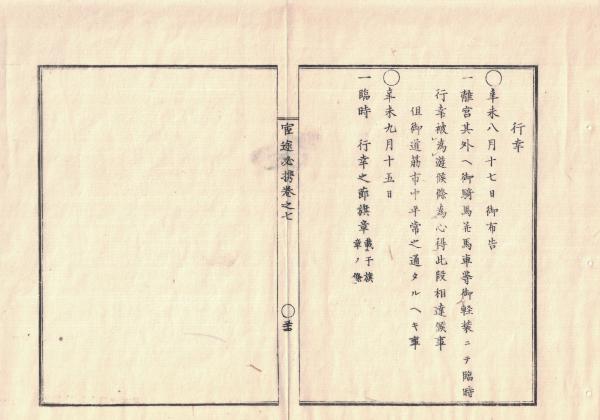 行幸
○辛未八月十七日御布告
一離宮其外ヘ御騎馬並馬車等御軽装ニテ臨時
行幸被為遊候條為心得此段相達候事
但御道筋市中平常之通タルヘキ事
○辛未九月十五日
一臨時 行幸之節旗章 載于旗
章ノ條
官途必携巻之七